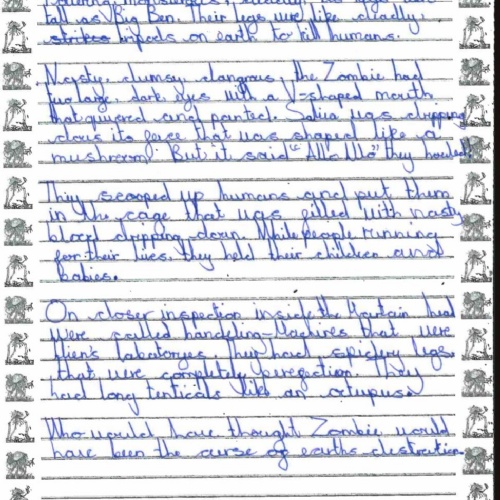 tall as Big Ben. Their legs were like deadly,
strikes bipeds on earth to kill humans.
Nasty, clumsy, dangrous, the Zombie had
two large, dark eyes with a V-shaped mouth
that quivered and panted. Saliva was dripping
down its face that was shaped like a
mushroom. But it said "Allo Allo" they howled!
They scooped up humans and put them
in the cage that was filled with nasty
blood dripping down. While people running
for their lives. They held their children and
babies.
On closer inspection inside the Martain had
were called handeling-Machines that were
Alien's labatoryes. They had spidery legs
that were completely
had long tenticals like an octupus.
Who would have thought Zombie would
have been the curse of earths destruction.